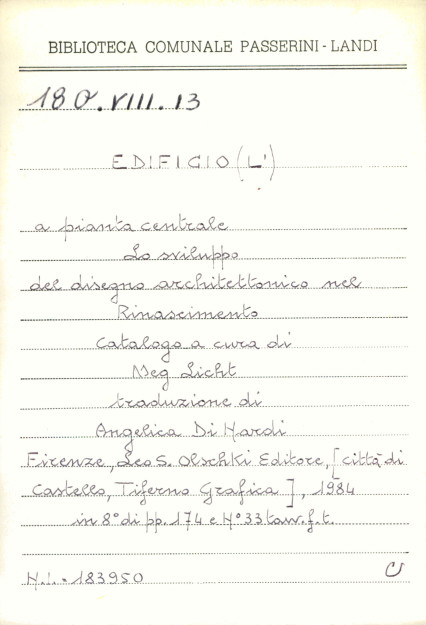 BIBLIOTECA COMUNALE PASSERINI - LANDI
180.VIII.13
EDIFICIO (L')
a pianta centrale
Lo sviluppo
del disegno architettonico nel
Rinascimento
Catalogo a cura di
Meg Licht
traduzione di
Angelica Di Nardi
Firenze, Leo S. Olschki Editore, [città di
Castello, Tiferno Grafica], 1984
in 8° di pp. 174 e N° 33 tav. f.t.
N.i. 183950